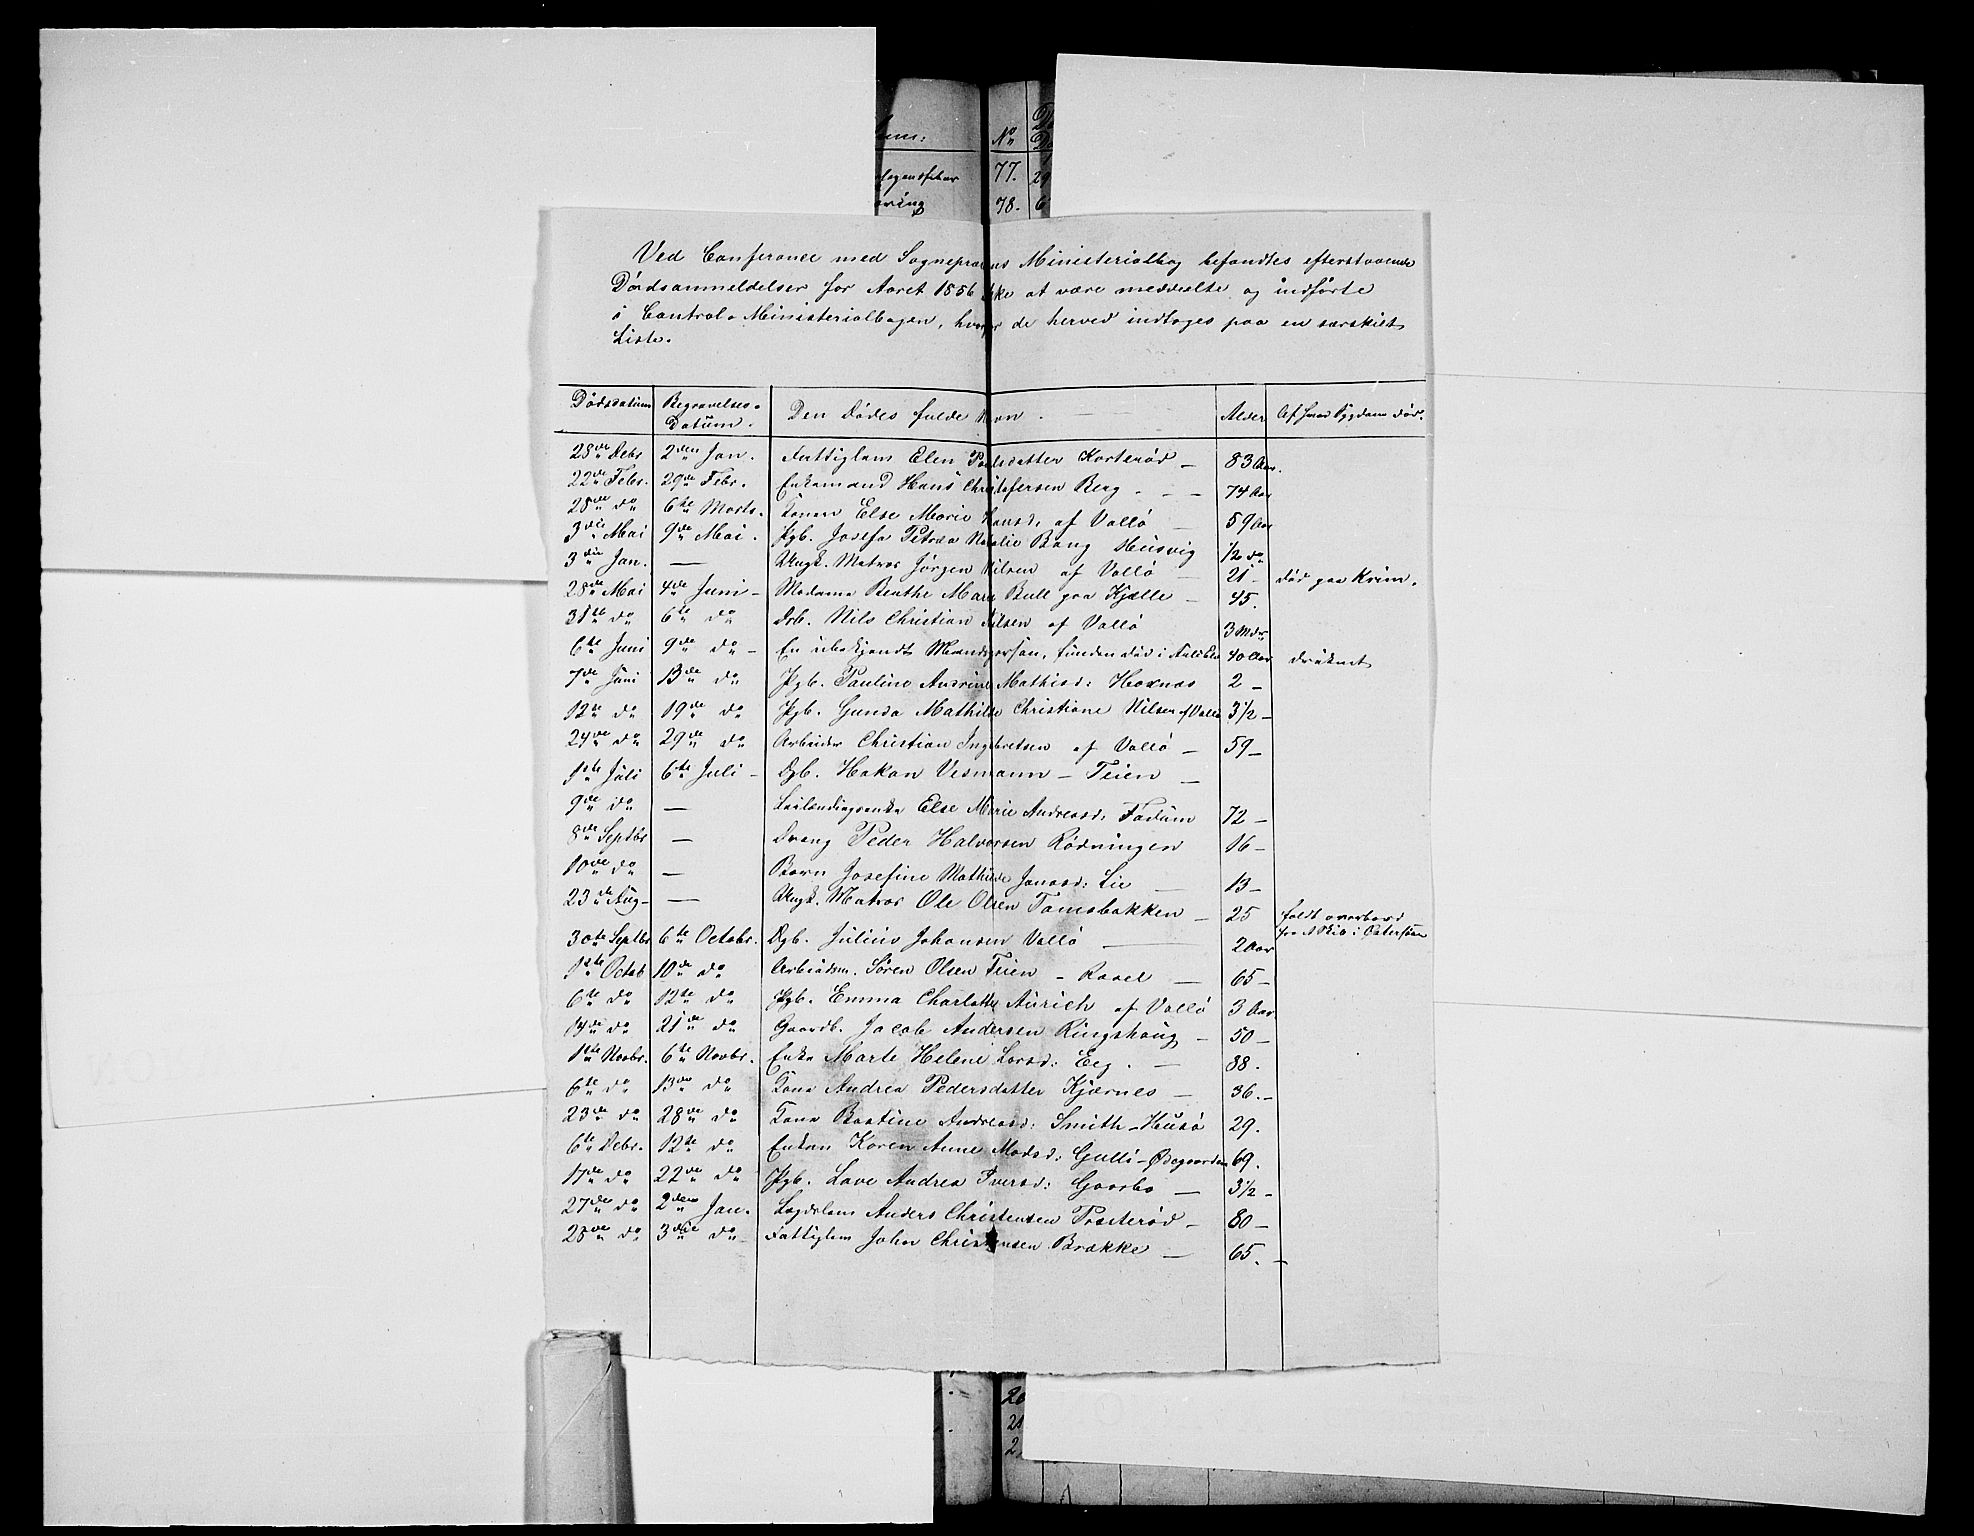 No
77. 29
78. 6
Ved Conferance med Sognepræstens Ministerialbog befandtes efterstaaende
Dødsanmeldelser for Aaret 1856 ikke at være meddeelte og indførte
i Control-Ministerialbogen, hvorfor de herved indtages paa en særskilt
Liste.
Dødsdatum Begravelses-Datum. Den dødes fulde Navn. Alder Af hvad Sygdom død.
28de Debr 2den Jan. Fattiglem Elen Polsdatter Korterød — 83 Aar.
22de Febr. 29de Febr. Enkemand Hans Christofersen Berg - - — 74 Aar
28de do 6te Marts. Konen Else Marie Hansd: af Vallø — 59 Aar
3die Mai 9de Mai. Pgb. Josefa Petrea Natalie Bang Husvig 1/2 do
3die Jan. — Ungk. Matros Jørgen Nilsen af Vallø — 21 — død paa Krim.
28de Mai 4de Juni — Madame Benthe Marie Bull paa Kjælle — 45.
31te do 6te do Drb. Nils Christian Nilsen af Vallø 3 Mdr
6te Juni 9de do — En ubekjendt Mandsperson, funden død i 40 Aar druknet
7de Juni 13de do Pgb. Pauline Andrine Mathisd: Hoxnæs 2 —
12te do 19de do Pgb. Gunda Mathilde Christiane Nilsen af Vallø 3 1/2 —
24de do 29de do Arbeider Christian Ingebretsen af Vallø — 59 —
1ste Juli 6te Juli — Dgb. Hakon Vesmann — Teien —
9de do — Else Marie Andreasd: Fadum 72 —
8de Septbr — Dreng Peder Halvorsen Rødningen 16 —
10de do — Barn Josefine Mathilde Jonasd: Lie — 13 —
23de Aug — — Ungk. Matros Ole Olsen Tamsbakken — 25 faldt overbord
fra Skib i Østersøen
30te Septbr 6te Octobr. Dgb. Julius Johansen Vallø — 2 Aar
1ste Octob 10de do Arbeidsm. Søren Olsen Teien — Ravel — 65 —
6te do 12te do Pgb. Emma Charlotte Aurich af Vallø 3 Aar
14de do 21de do Gaardb. Jacob Andersen Ringshaug — 50 —
1ste Novbr. 6te Novbr. Enke Marte Helene Larsd: Eeg. — 88.
6te do 13de do Kone Andrea Pedersdatter Kjærnes — 36. —
23de do 28de do Kone Bastine Andreasd: Smith — Husø 29.
6te Debr. 12te do Enken Karen Anne Madsd: Gulli — Ødegaarden 69.
17de do 22de do Pgb. Lave Andrea Iversd: Gaasbo — 3 1/2 —
27de do 2den Jan. Lægdslem Anders Christensen Præsterød — 80 —
28de do 3die do — Fattiglem John Christensen Brække — 65. —